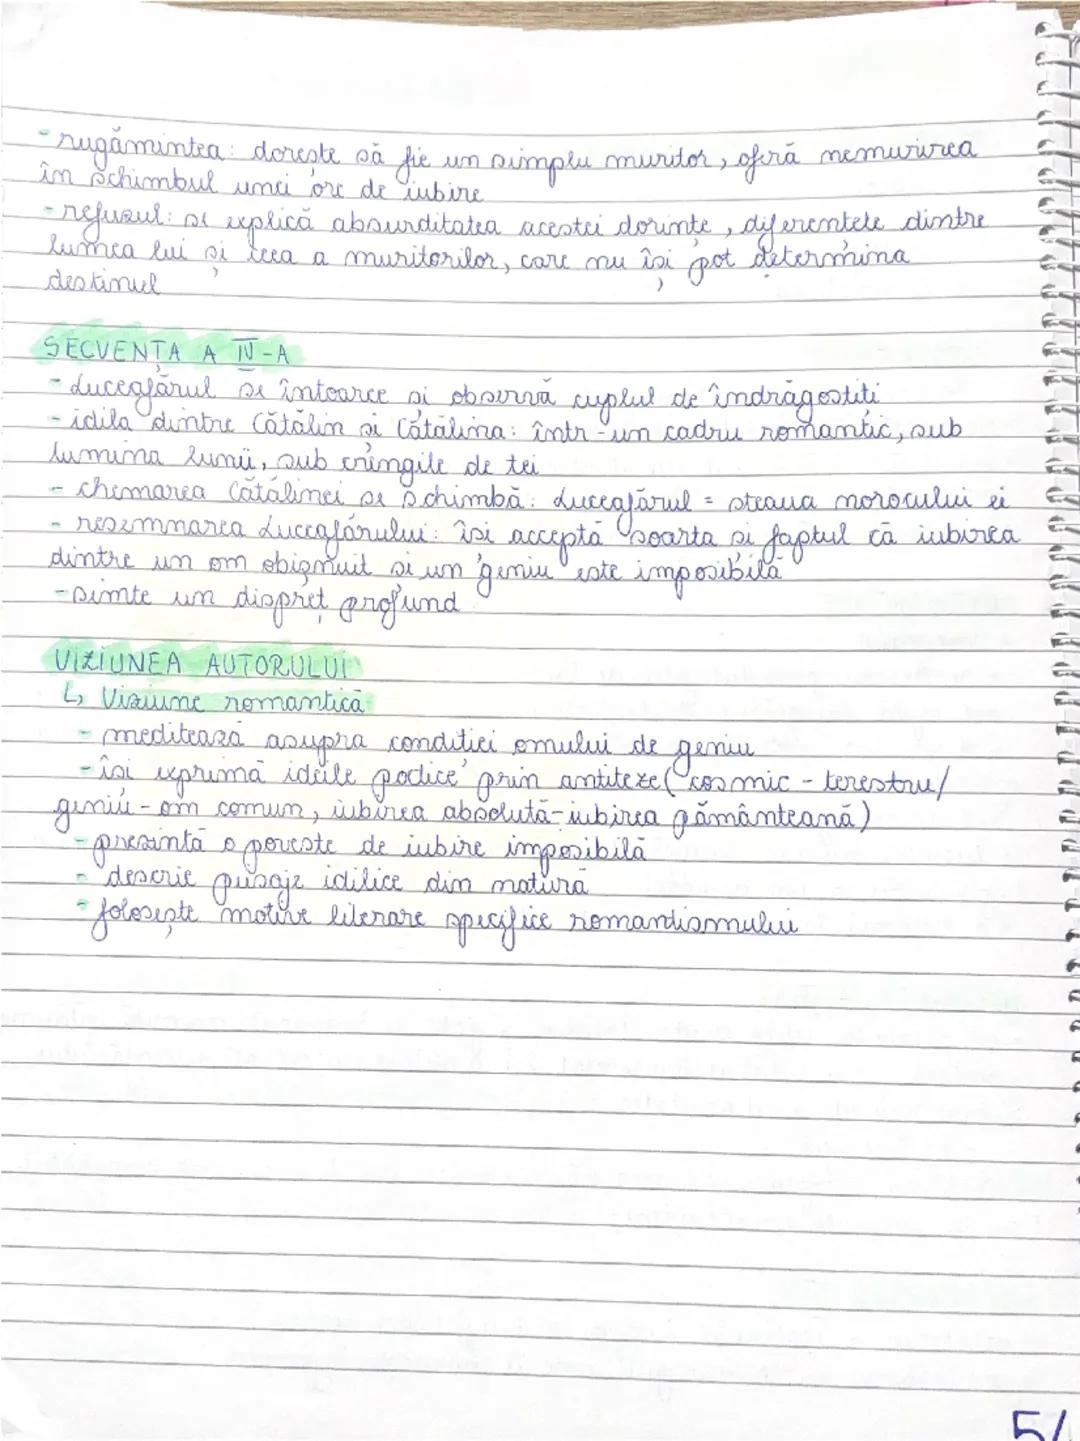 - rugămintea: dorește să fie un simplu muritor, oferă nemurirea
în schimbul unei ore de iubire
- refuzul: se explică absurditatea acestei dorințe, diferențele dintre
lumea lui și ceea a muritorilor, care nu își pot determina
destinul
SECVENȚA A IV-A
- Luceafărul se întoarce și observă cuplul de îndrăgostiți
- idila dintre Cătălin și Cătălina: într-un cadru romantic, sub
lumina lunii, sub crengile de tei
- chemarea Cătălinei se schimbă: Luceafărul = steaua norocului ei
- resemnarea Luceafărului: își acceptă soarta și faptul că iubirea
dintre un om obișnuit și un geniu este imposibilă
- simte un dispreț profund
VIZIUNEA AUTORULUI
↳ Viziune romantică
- meditează asupra condiției omului de geniu
- își exprimă ideile poetice prin antiteze (cosmic - terestru/
geniu - om comun, iubirea absolută - iubirea pământeană)
- prezintă o poveste de iubire imposibilă
- descrie peisaje idilice din natură
- folosește motive literare specifice romantismului